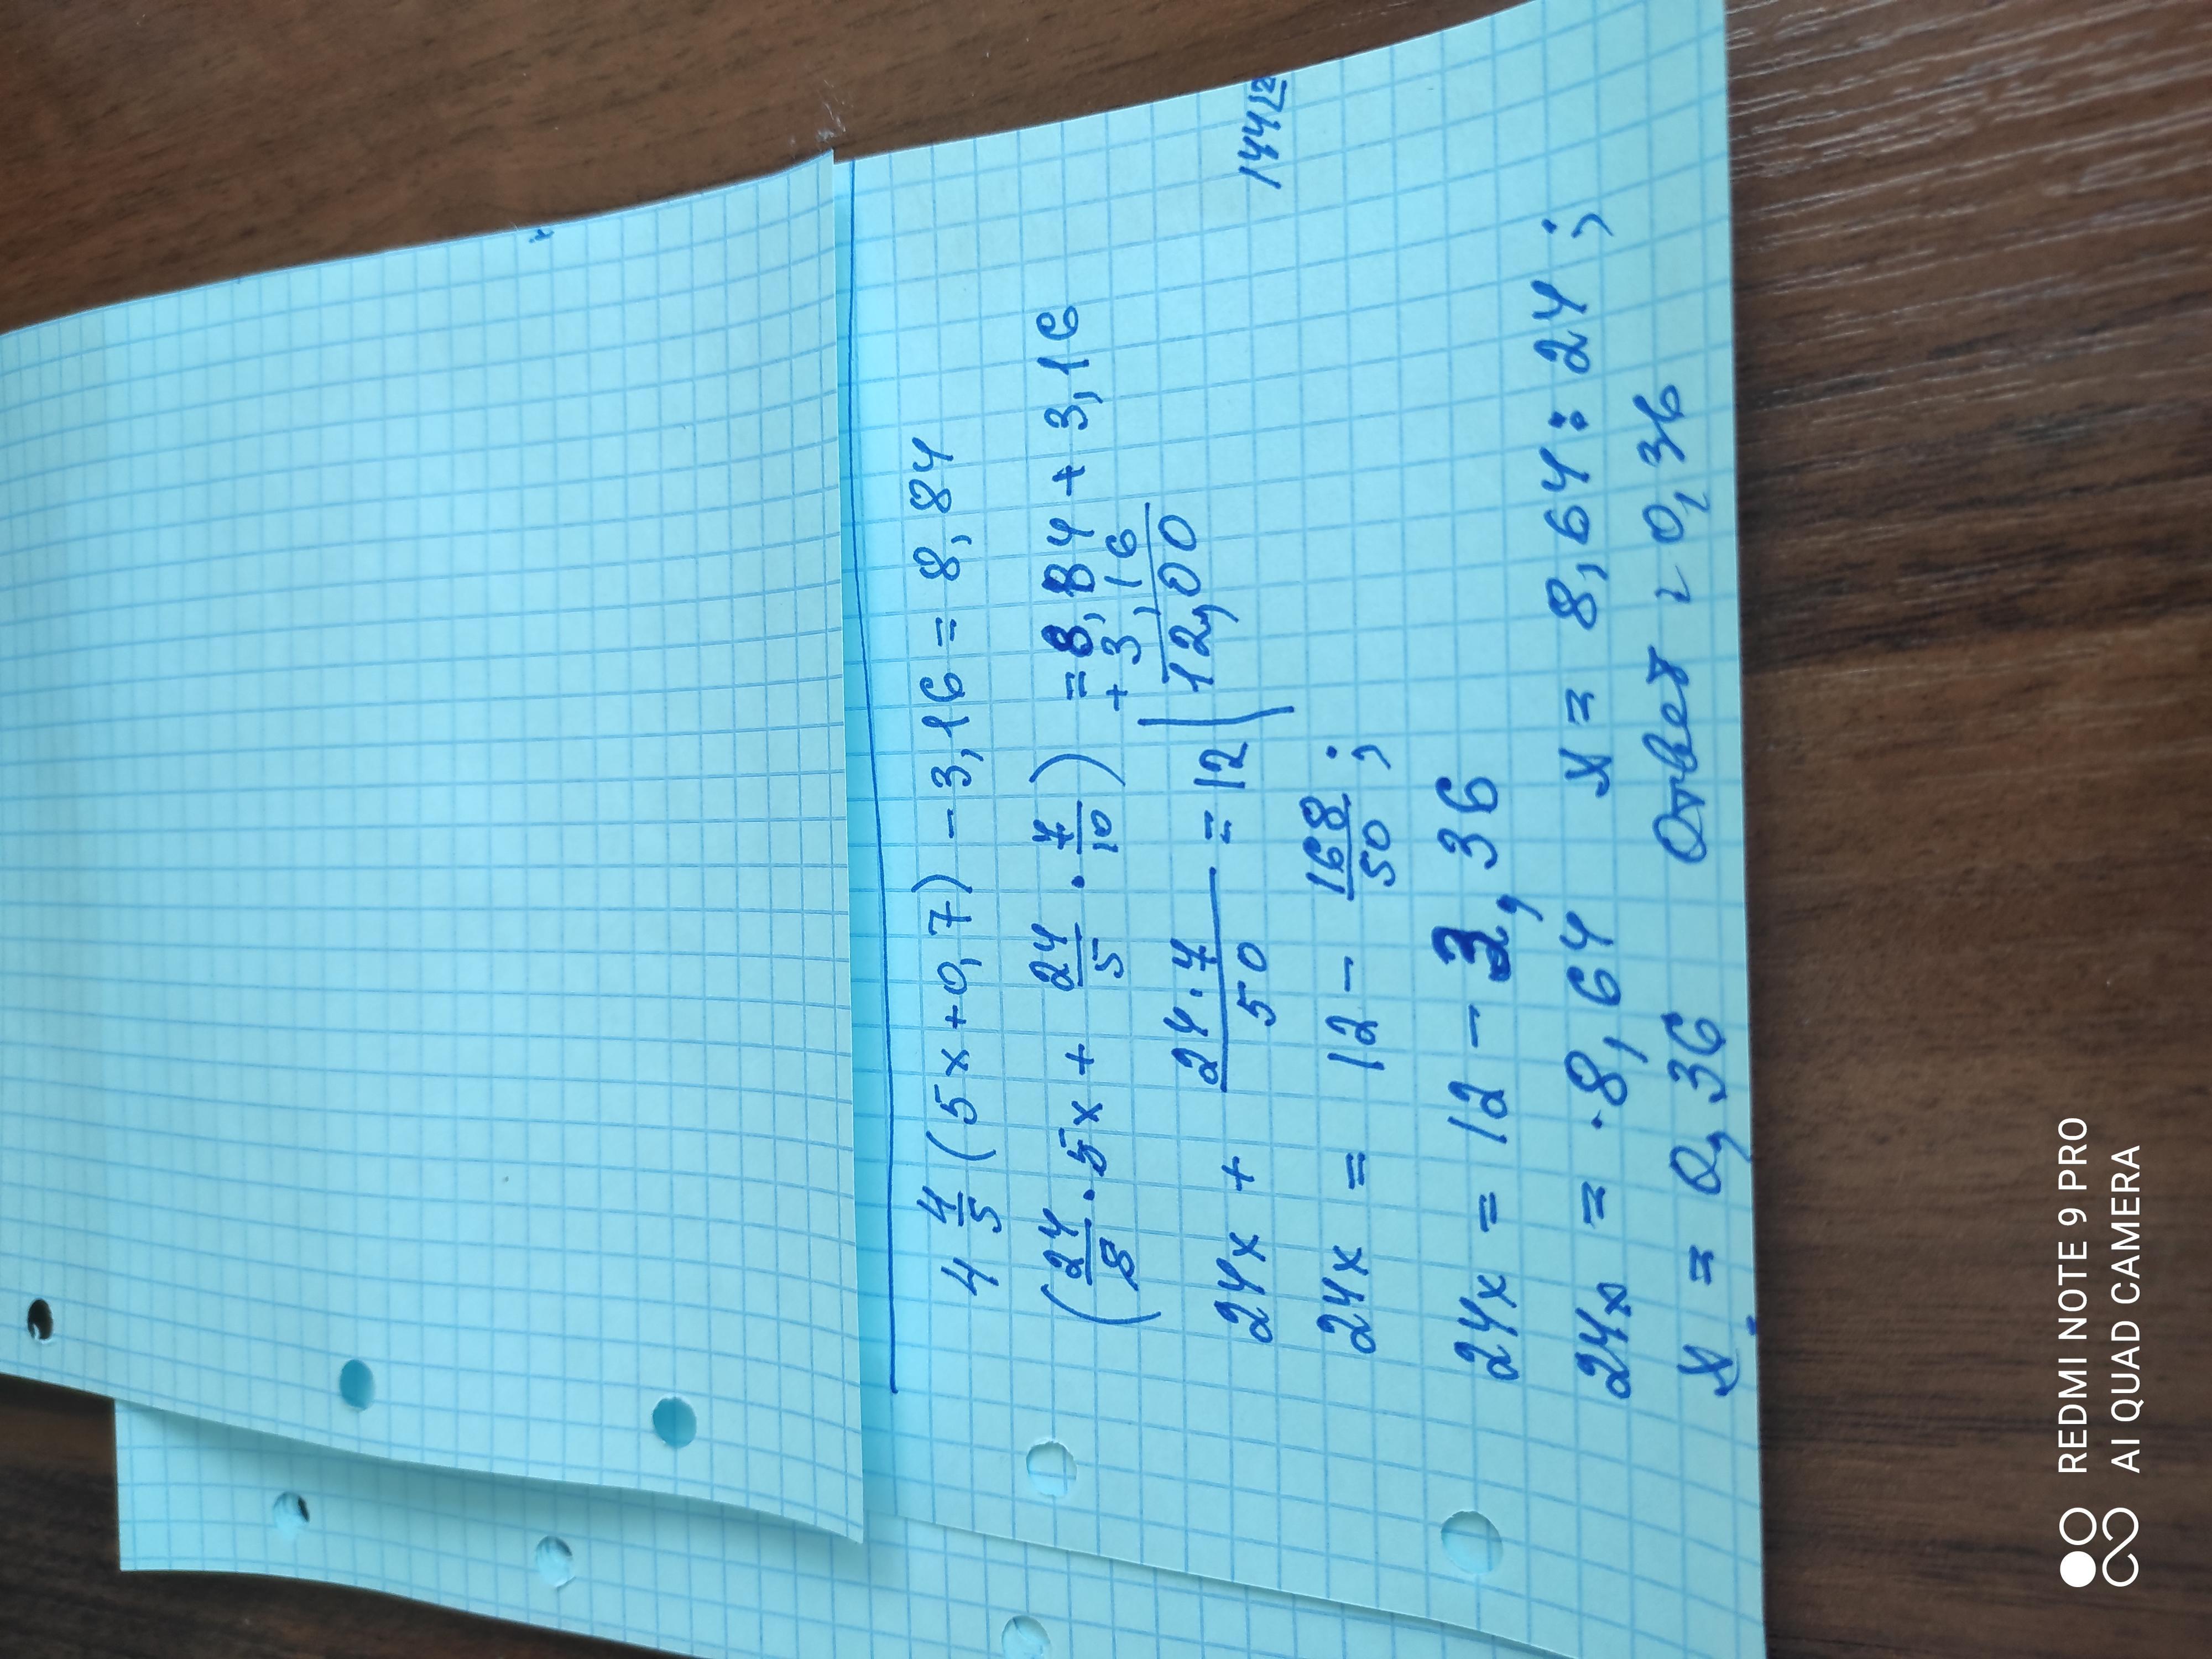 4 4/5 (5x+0,7) - 3,16 = 8,84
(24/5 · 5x + 24/5 · 7/10) = 8,84 + 3,16
+ 3,16
24x + 24·7/50 = 12 | 12,00
144 12
24x = 12 - 168/50 ;
24x = 12 - 3,36
24x = 8,64 x = 8,64 : 24 ;
x = 0,36 Ответ : 0,36
REDMI NOTE 9 PRO
AI QUAD CAMERA